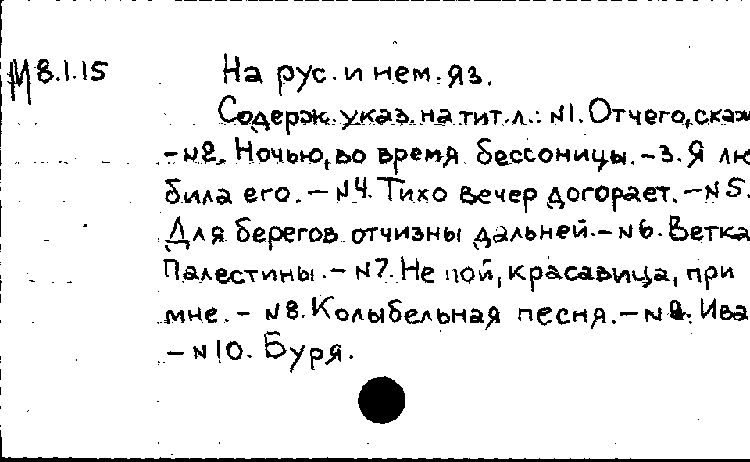 М8.1.15 На рус. и нем. яз.
Содерж. указ. на тит. л.: №1. Отчего, скаж
- №2. Ночью, во время бессоницы. - 3. Я лю
била его. - №4. Тихо вечер догорает. - №5.
Для берегов отчизны дальней. - №6. Ветка
Палестины. - №7. Не пой, красавица, при
мне. - №8. Колыбельная песня. - №9. Ива
- №10. Буря.